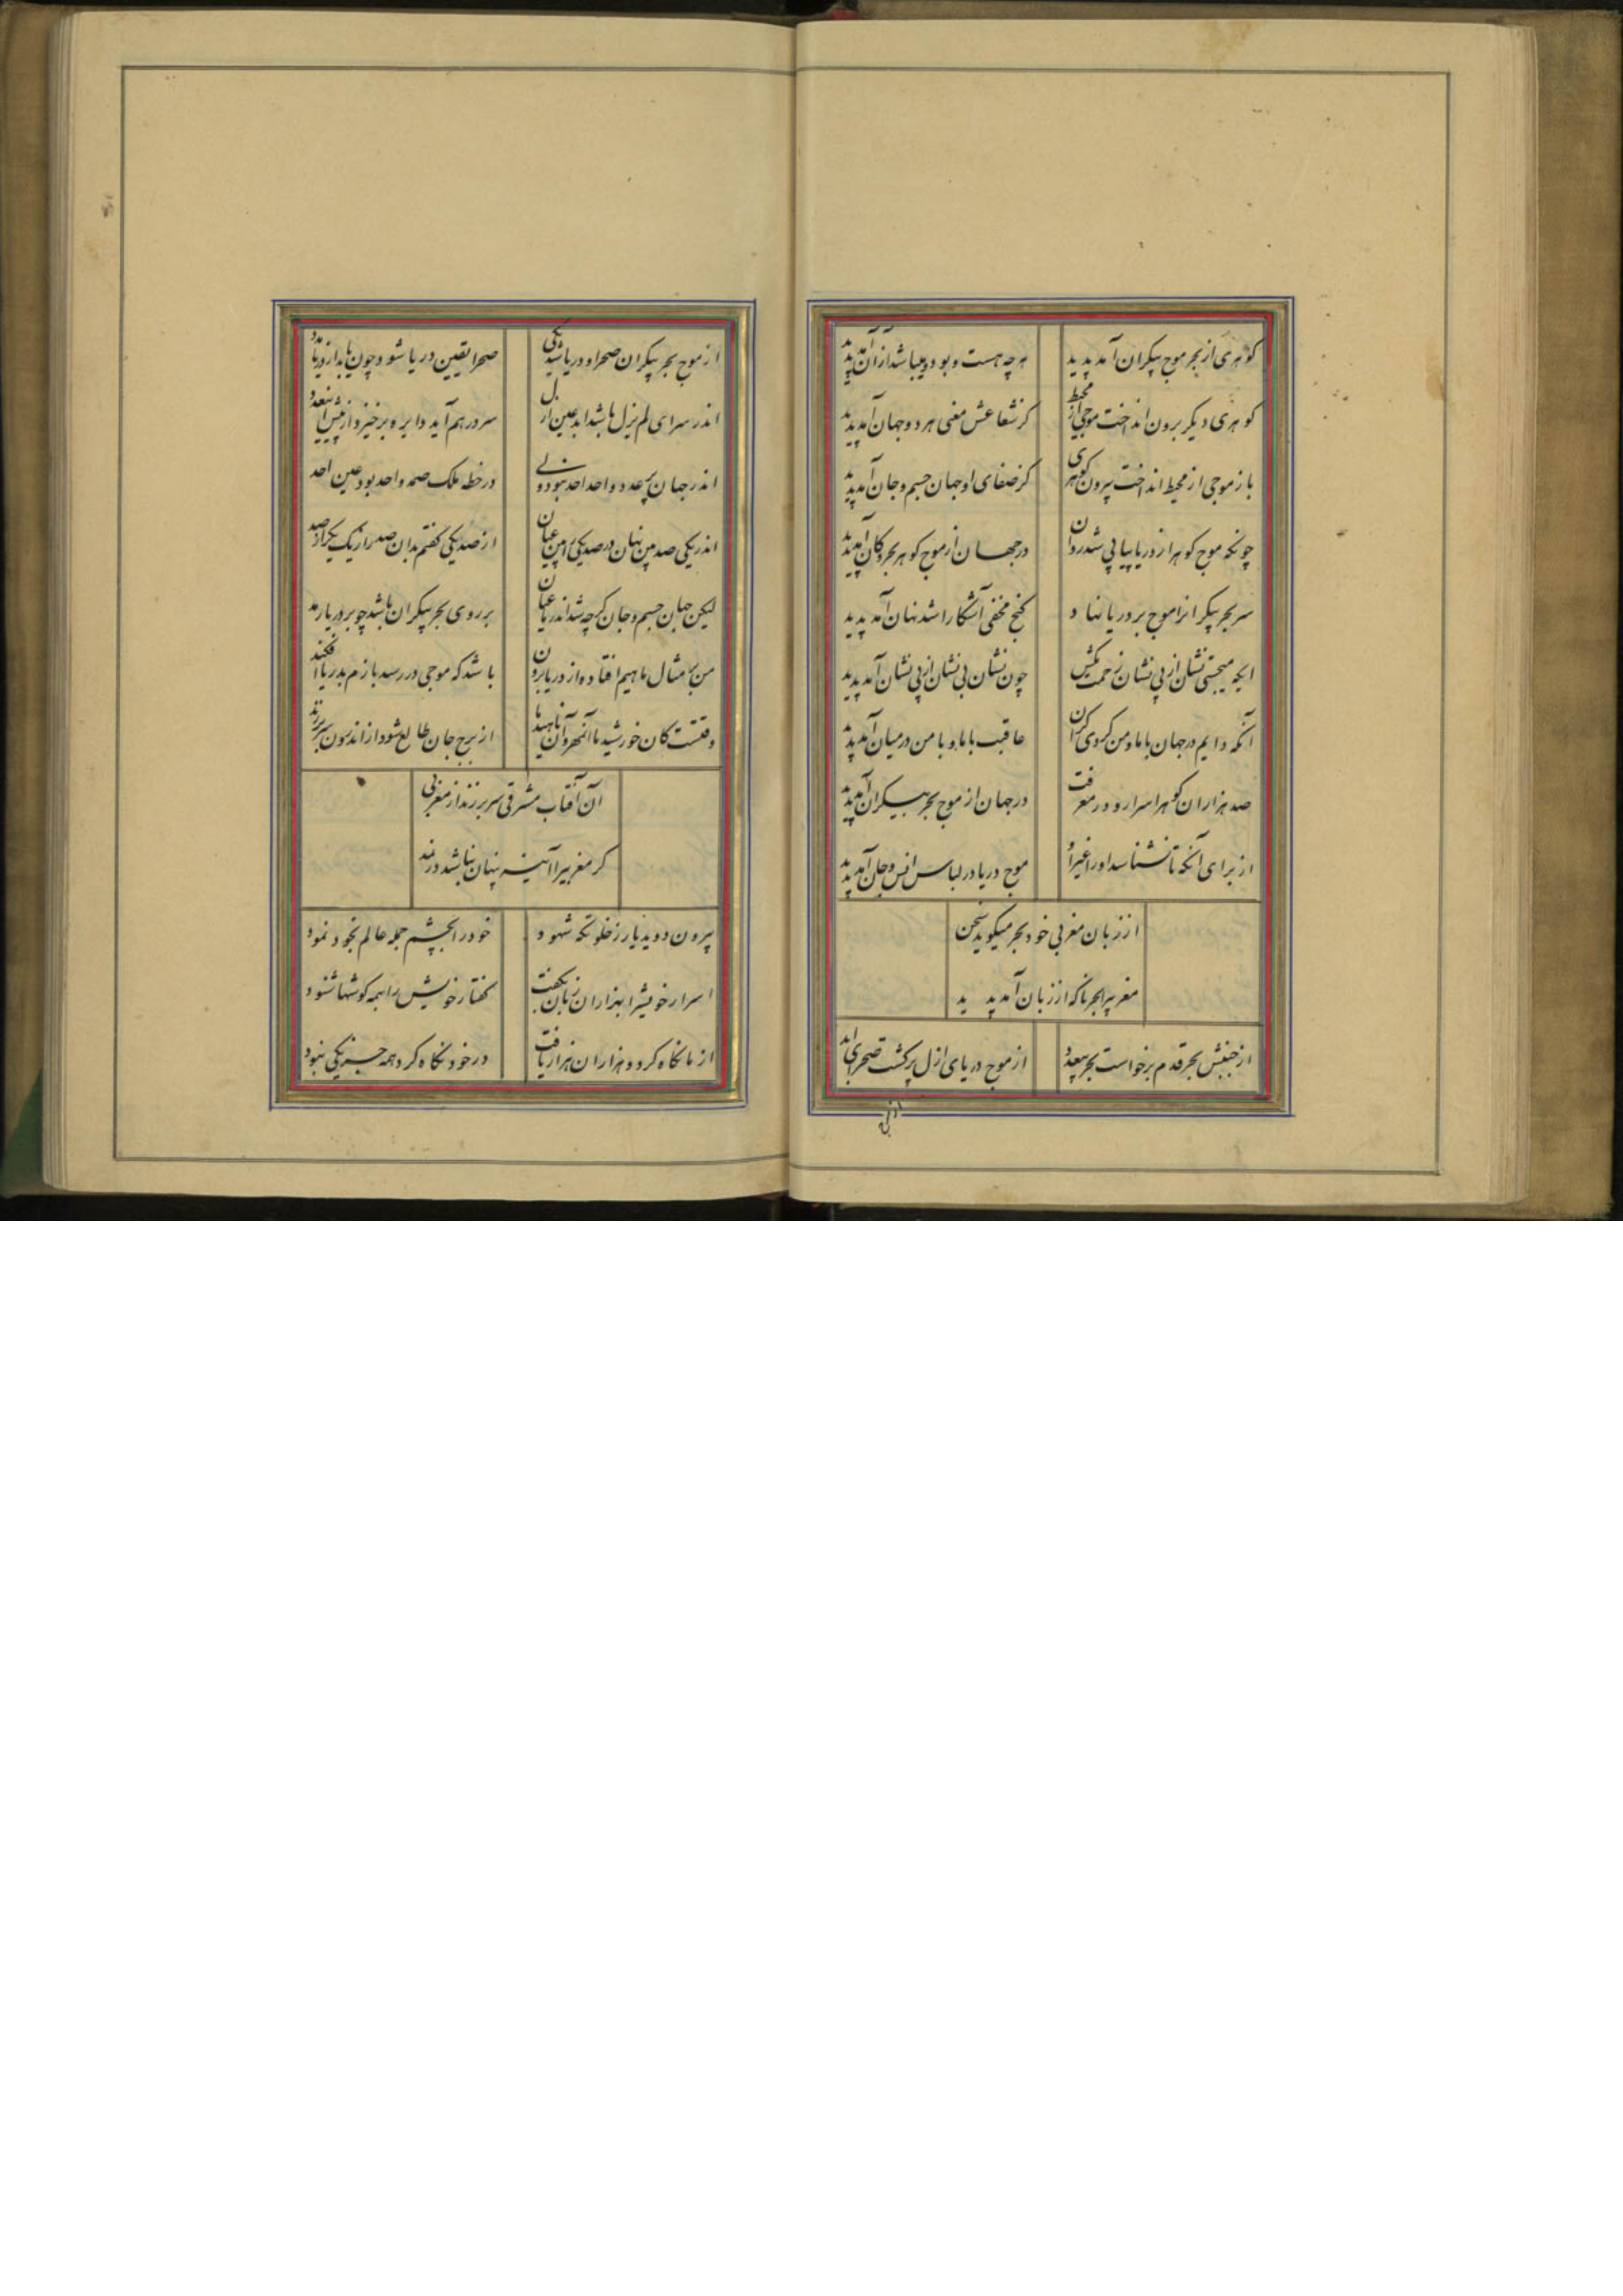 کوهری از بحر موج بیکران آمد پدید هر چه هست و بود و میباشد از آن آمد پدید
کوهری دیکر برون انداخت موجی از محیط کز شعاعش معنی هر دو جهان آمد پدید
باز موجی از محیط انداخت بیرون کوهری کز صفای او جهان جسم و جان آمد پدید
چونکه موج کوهر از دریا پیاپی شد روان در جهان از موج کوهر بحر و کان آمد پدید
سر بحر بیکرانرا موج بر دریا نهاد کنج مخفی آشکارا شد نهان آمد پدید
ایکه میجستی نشان از بی نشان زحمت مکش چون نشان بی نشان از بی نشان آمد پدید
آنکه دایم در جهان با ما و من کردی کران عاقبت با ما و با من در میان آمد پدید
صد هزاران کوهر اسرار و در معرفت در جهان از موج بحر بیکران آمد پدید
از برای آنکه تا نشناسد او را غیر او موج دریا در لباس انس و جان آمد پدید
از زبان مغربی خود بحر میکوید سخن
مغربیرا بحر ناکه از زبان آمد پدید
از جنبش بحر قدم برخواست بحر بیعدد از موج دریای ازل پرکشت صحرای ابد
از موج بحر بیکران صحرا و دریا شد یکی صحرا یقین دریا شود چون یابد از دریا مدد
اندر سرای لم یزل باشد ابد عین ازل سر در هم آید دایره برخیزد از پیش
اندر جهان بیعدد واحد احد بود ولی در خطه ملک صمد واحد بود عین احد
اندر یکی صد بین نهان در صد یکی را بین عیان از صد یکی کفتم بدان صد را ز یک یک را ز صد
لیکن جهان جسم و جان کرچه شد اندر یا عیان بر روی بحر بیکران باشد چو بر دریا زبد
من بر مثال ماهیم افتاده از دریا برون باشد که موجی در رسد بازم بدریا افکند
وقتست کان خورشید ما آنمهر و آن ناهید ما از برج جان طالع شود از اندرون سر برزند
آن آفتاب مشرقی سر برزند از مغربی
کر مغربیرا آینه پنهان نباشد در نمد
بیرون دوید یار ز خلوتکه شهود خود را بچشم جمله عالم بخود نمود
اسرار خویش را بهزاران زبان بکفت کفتار خویش را بهمه کوشها شنود
از ما نکاه کرد و هزاران هزار یافت در خود نکاه کرد همه جز یکی نبود